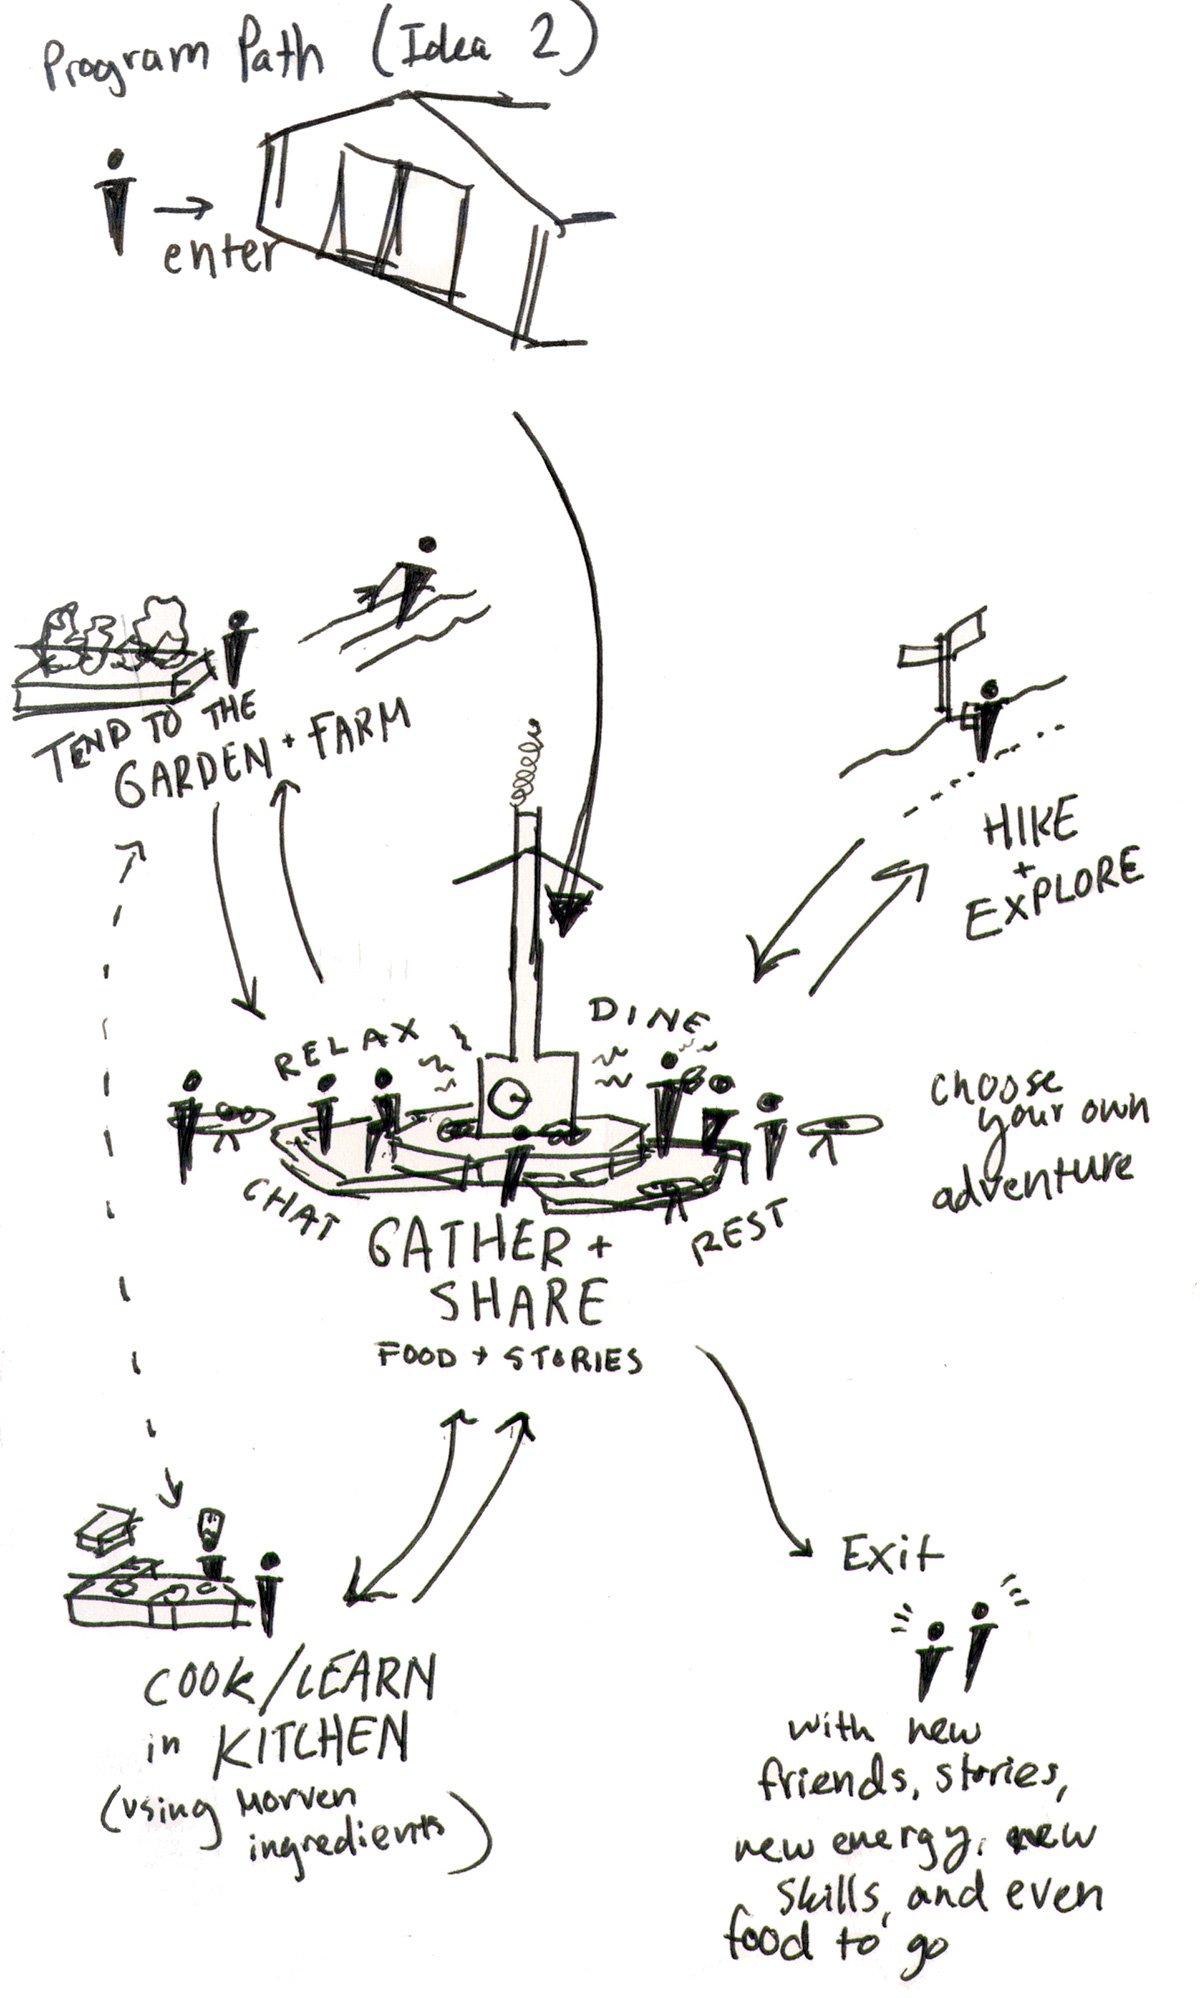 Program Path (Idea 2)
enter
TEND TO THE
GARDEN + FARM
HIKE
+
EXPLORE
RELAX
DINE
choose
your own
adventure
CHAT
REST
GATHER +
SHARE
FOOD + STORIES
Exit
COOK/LEARN
in KITCHEN
(using Morven
ingredients)
with new
friends, stories,
new energy, new
skills, and even
food to go